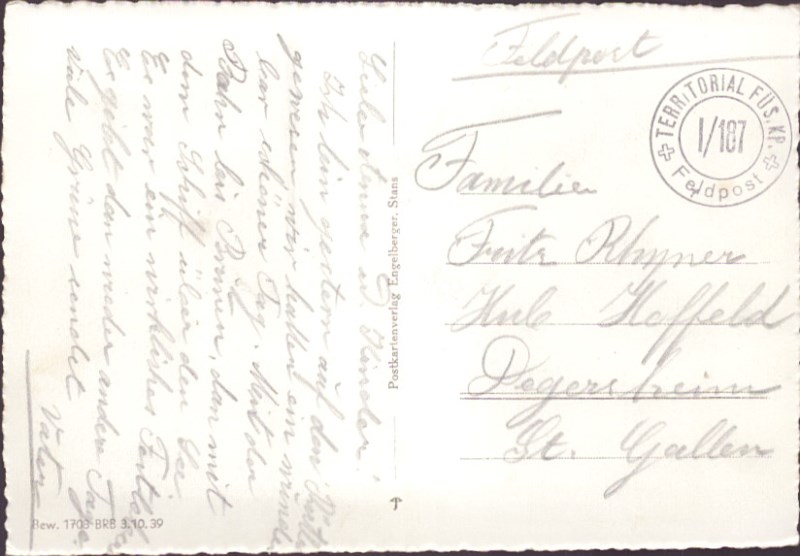 Feldpost
TERRITORIAL FÜS. KP.
I/187
Feldpost
Familien
Fritz Rhyner
Hub Hoffeld
Degersheim
St. Gallen
Postkartenverlag Engelberger, Stans
Liebe Anna u. Kinder!
Ich bin gestern auf dem Rütli
gewesen wir hatten ein wunder
bar schöner Tag. Mit der
Bahn bis Brunnen, dan mit
dem Schiff über den See
Es war ein wirkliches
Es gibt dan wieder andere Tage.
viele Grüsse sendet
Vater
Bew. 1703 BRB 3.10.39